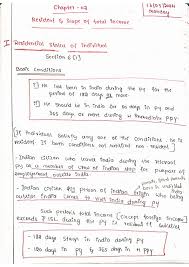 Chapter - 02
Resident & Scope of total income
I Residential Status of individual
Section 6(1)
Basic Conditions
1) He has been in India during the PY for the
period of 182 days or more
2) He should be in India for 60 days in PY and
365 days or more during 4 immediate PPY
If individual satisfy any one of the conditions he is
resident. If both conditions not satisfied non-resident
- Indian citizen who travel India during the
PY as a member of crew of Indian ship for purpose of
employment outside India
- Indian citizen or person of Indian origin who being
outside India comes to visit India during PY
Such person's total income [except foreign income]
exceeds ₹ 15L during the PY
- 182 days stays in India during PY
- 120 days in PY & 365 days in 4 PPY